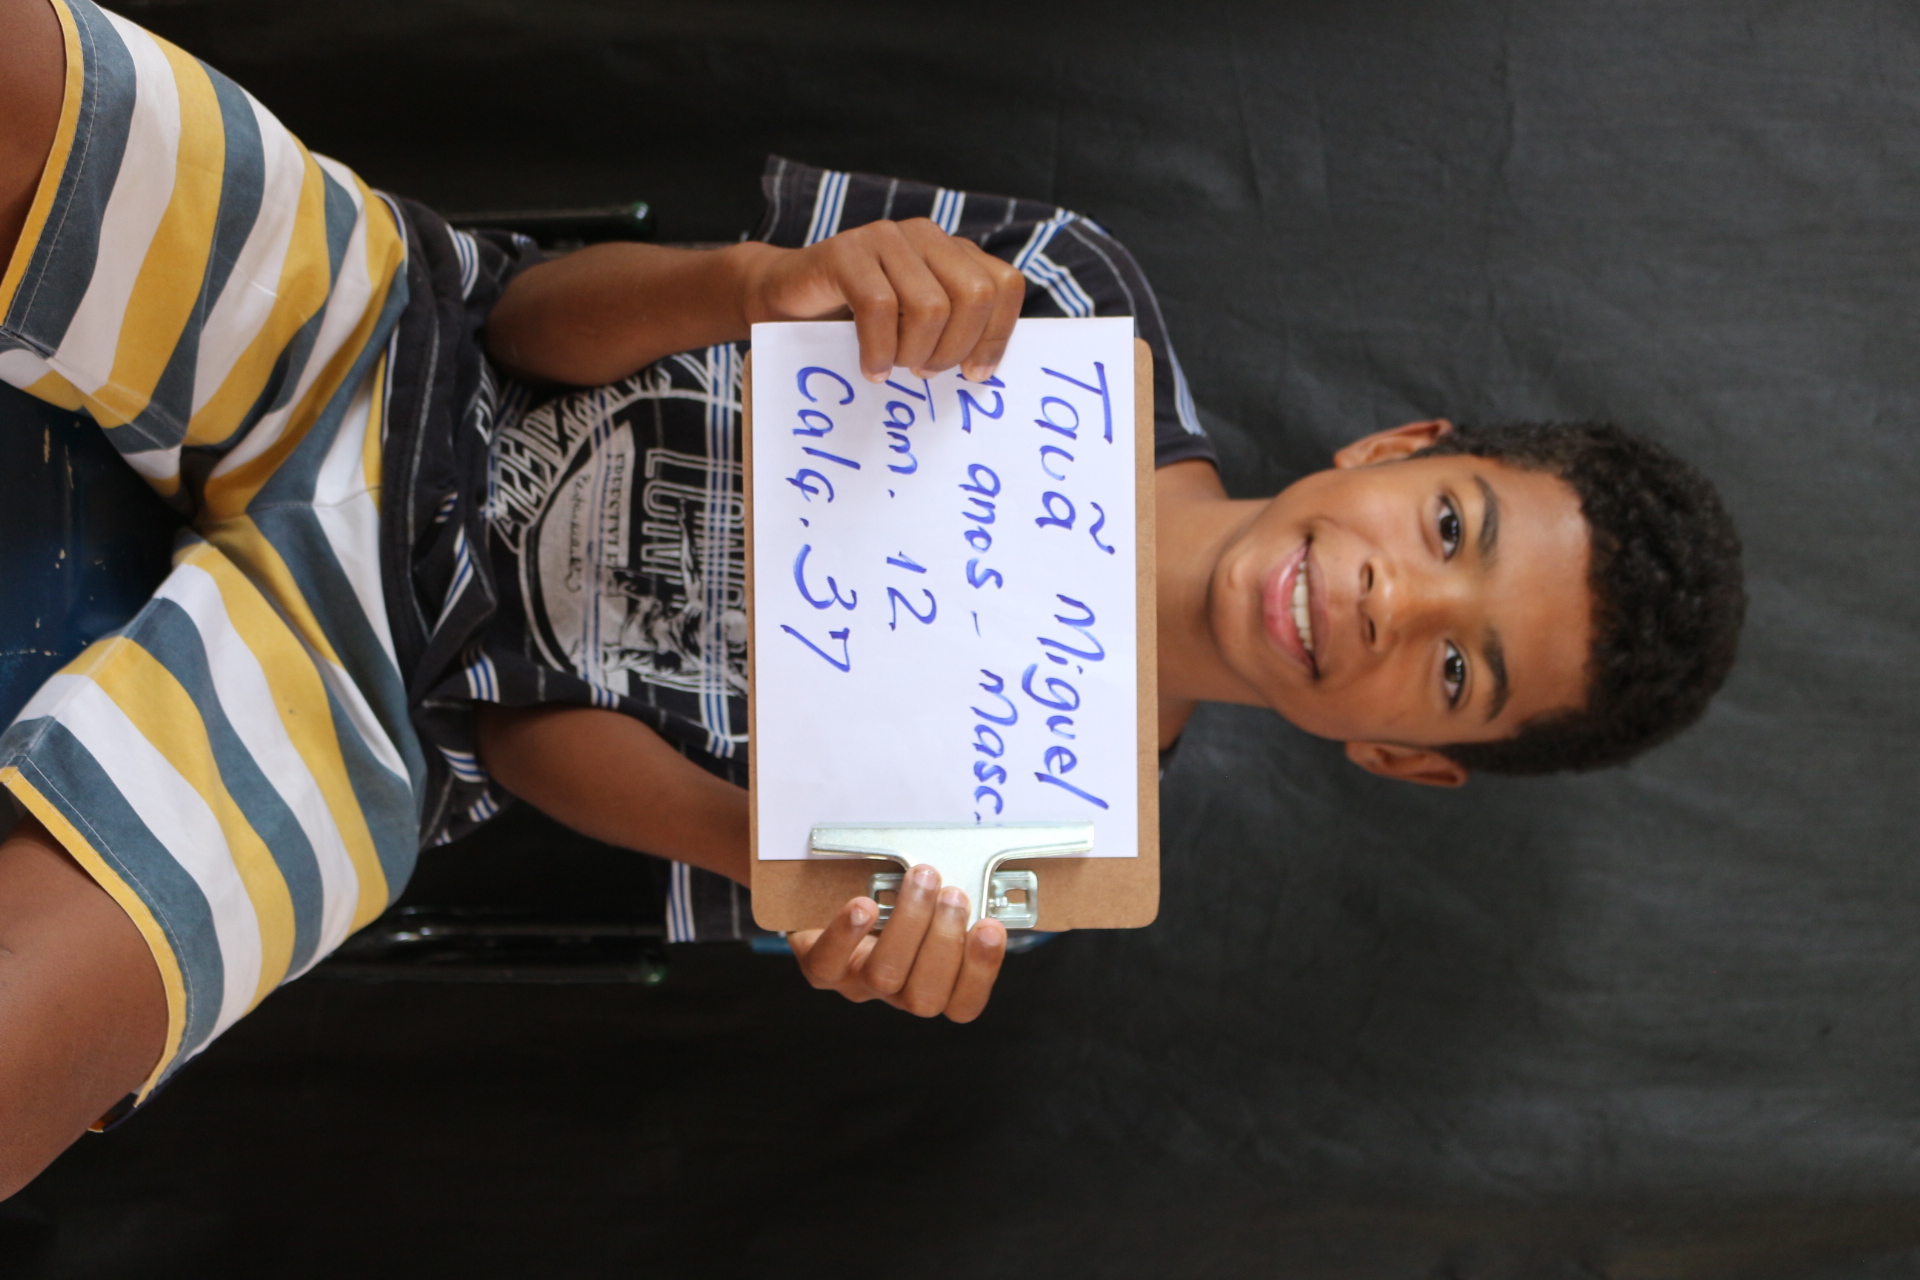 Tauã Miguel
12 anos - Masc.
Tam. 12
Calç. 37
LONDON
FREESTYLE